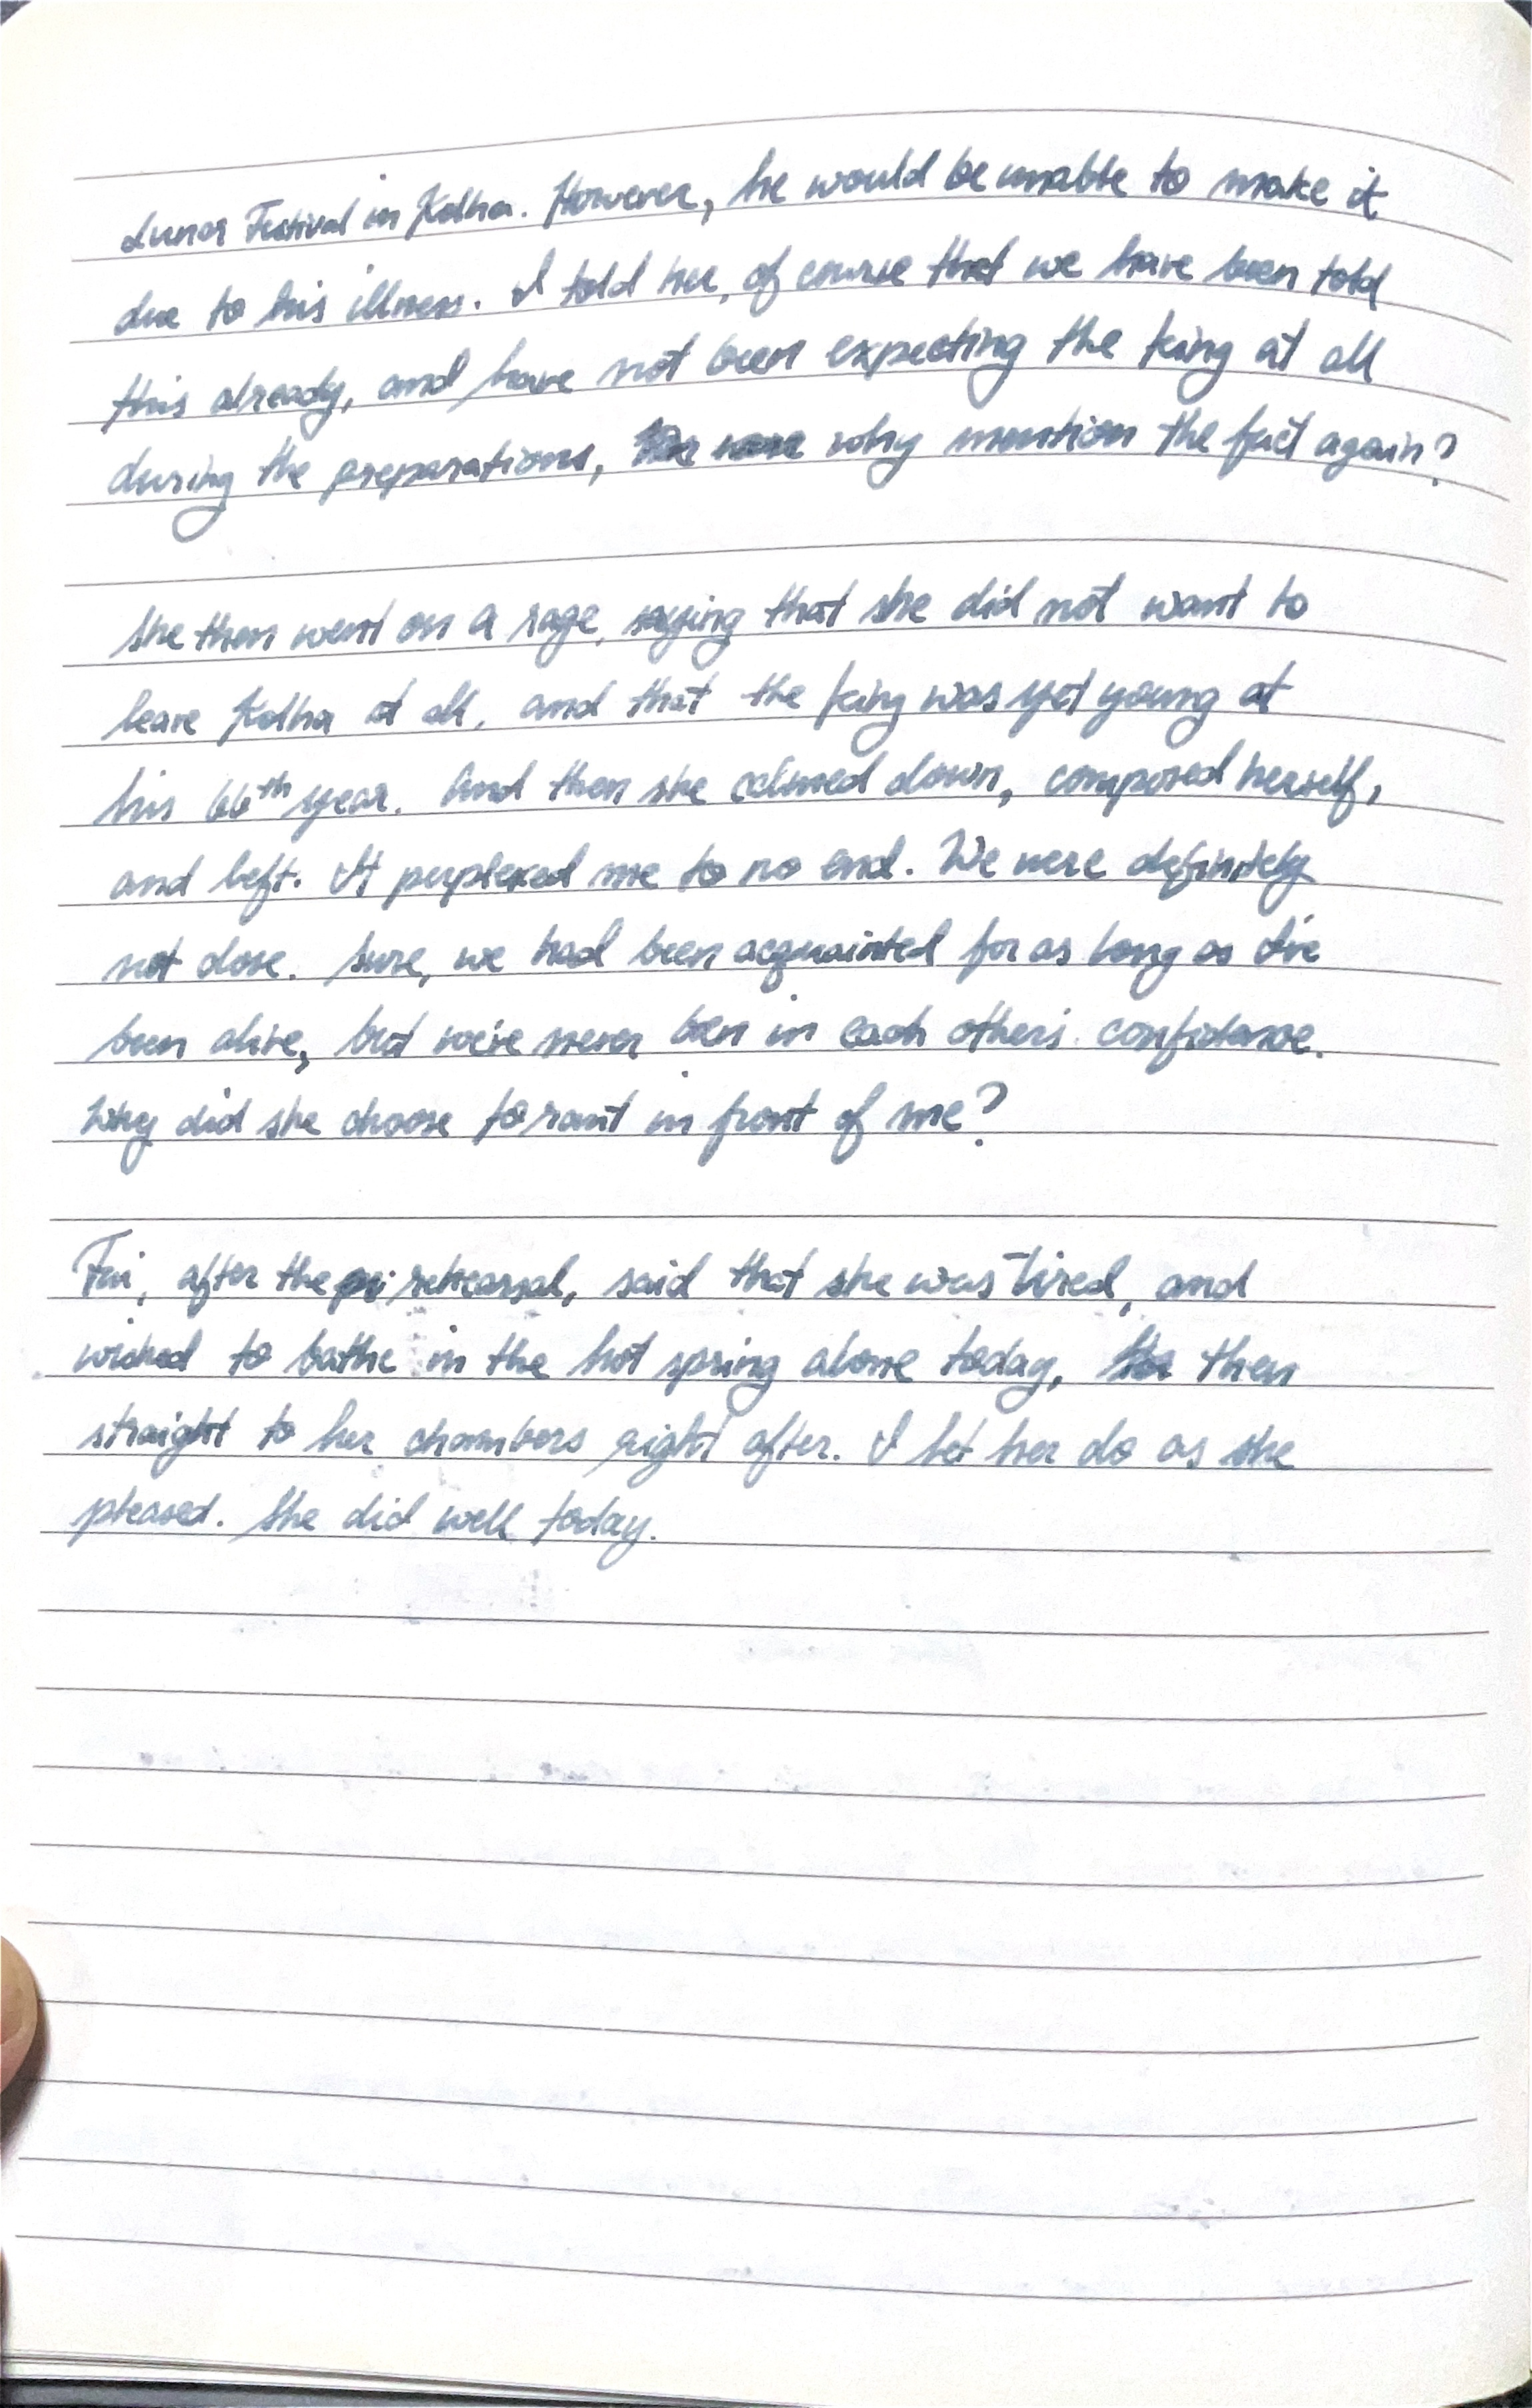 Lunar Festival in Kolha. However, he would be unable to make it
due to his illness. I told her, of course that we have been told
this already, and have not been expecting the king at all
during the preparations, why mention the fact again?
She then went on a rage, saying that she did not want to
leave Kolha at all, and that the king was yet young at
his 66th year. And then she calmed down, composed herself,
and left. It perplexed me to no end. We were definitely
not close. Sure, we had been acquainted for as long as I've
been alive, but we've never been in each others' confidence.
Why did she choose to rant in front of me?
Fai, after the rehearsal, said that she was tired, and
wished to bathe in the hot spring alone today, then
straight to her chambers right after. I let her do as she
pleased. She did well today.